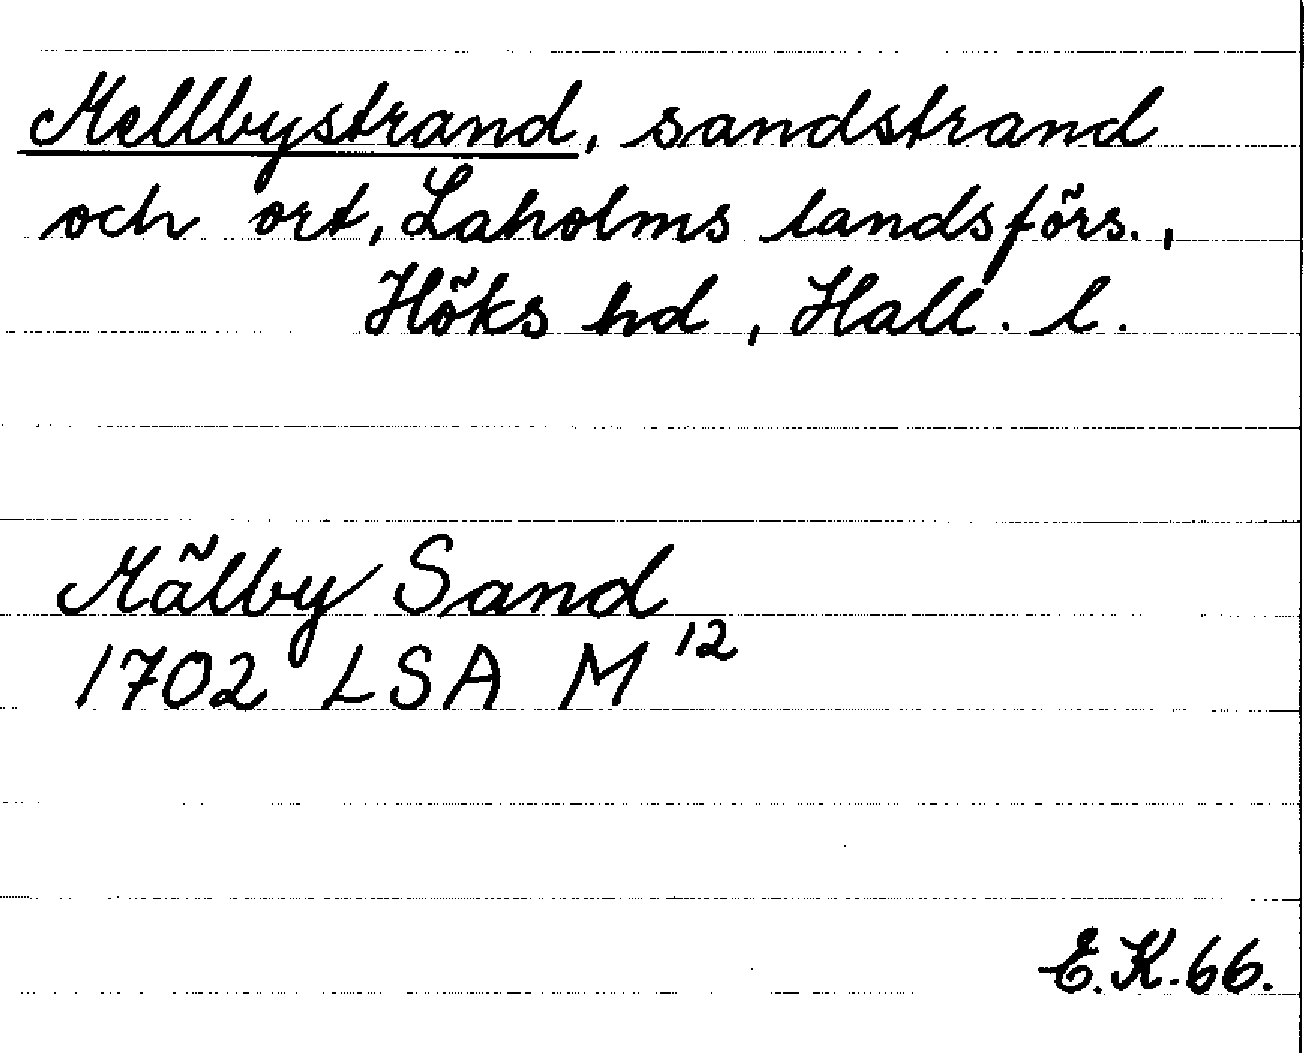 Mellbystrand, sandstrand
och ort, Laholms landsförs.,
Höks hd, Hall. l.
Mälby Sand
1702 LSA M¹²
E.K.66.